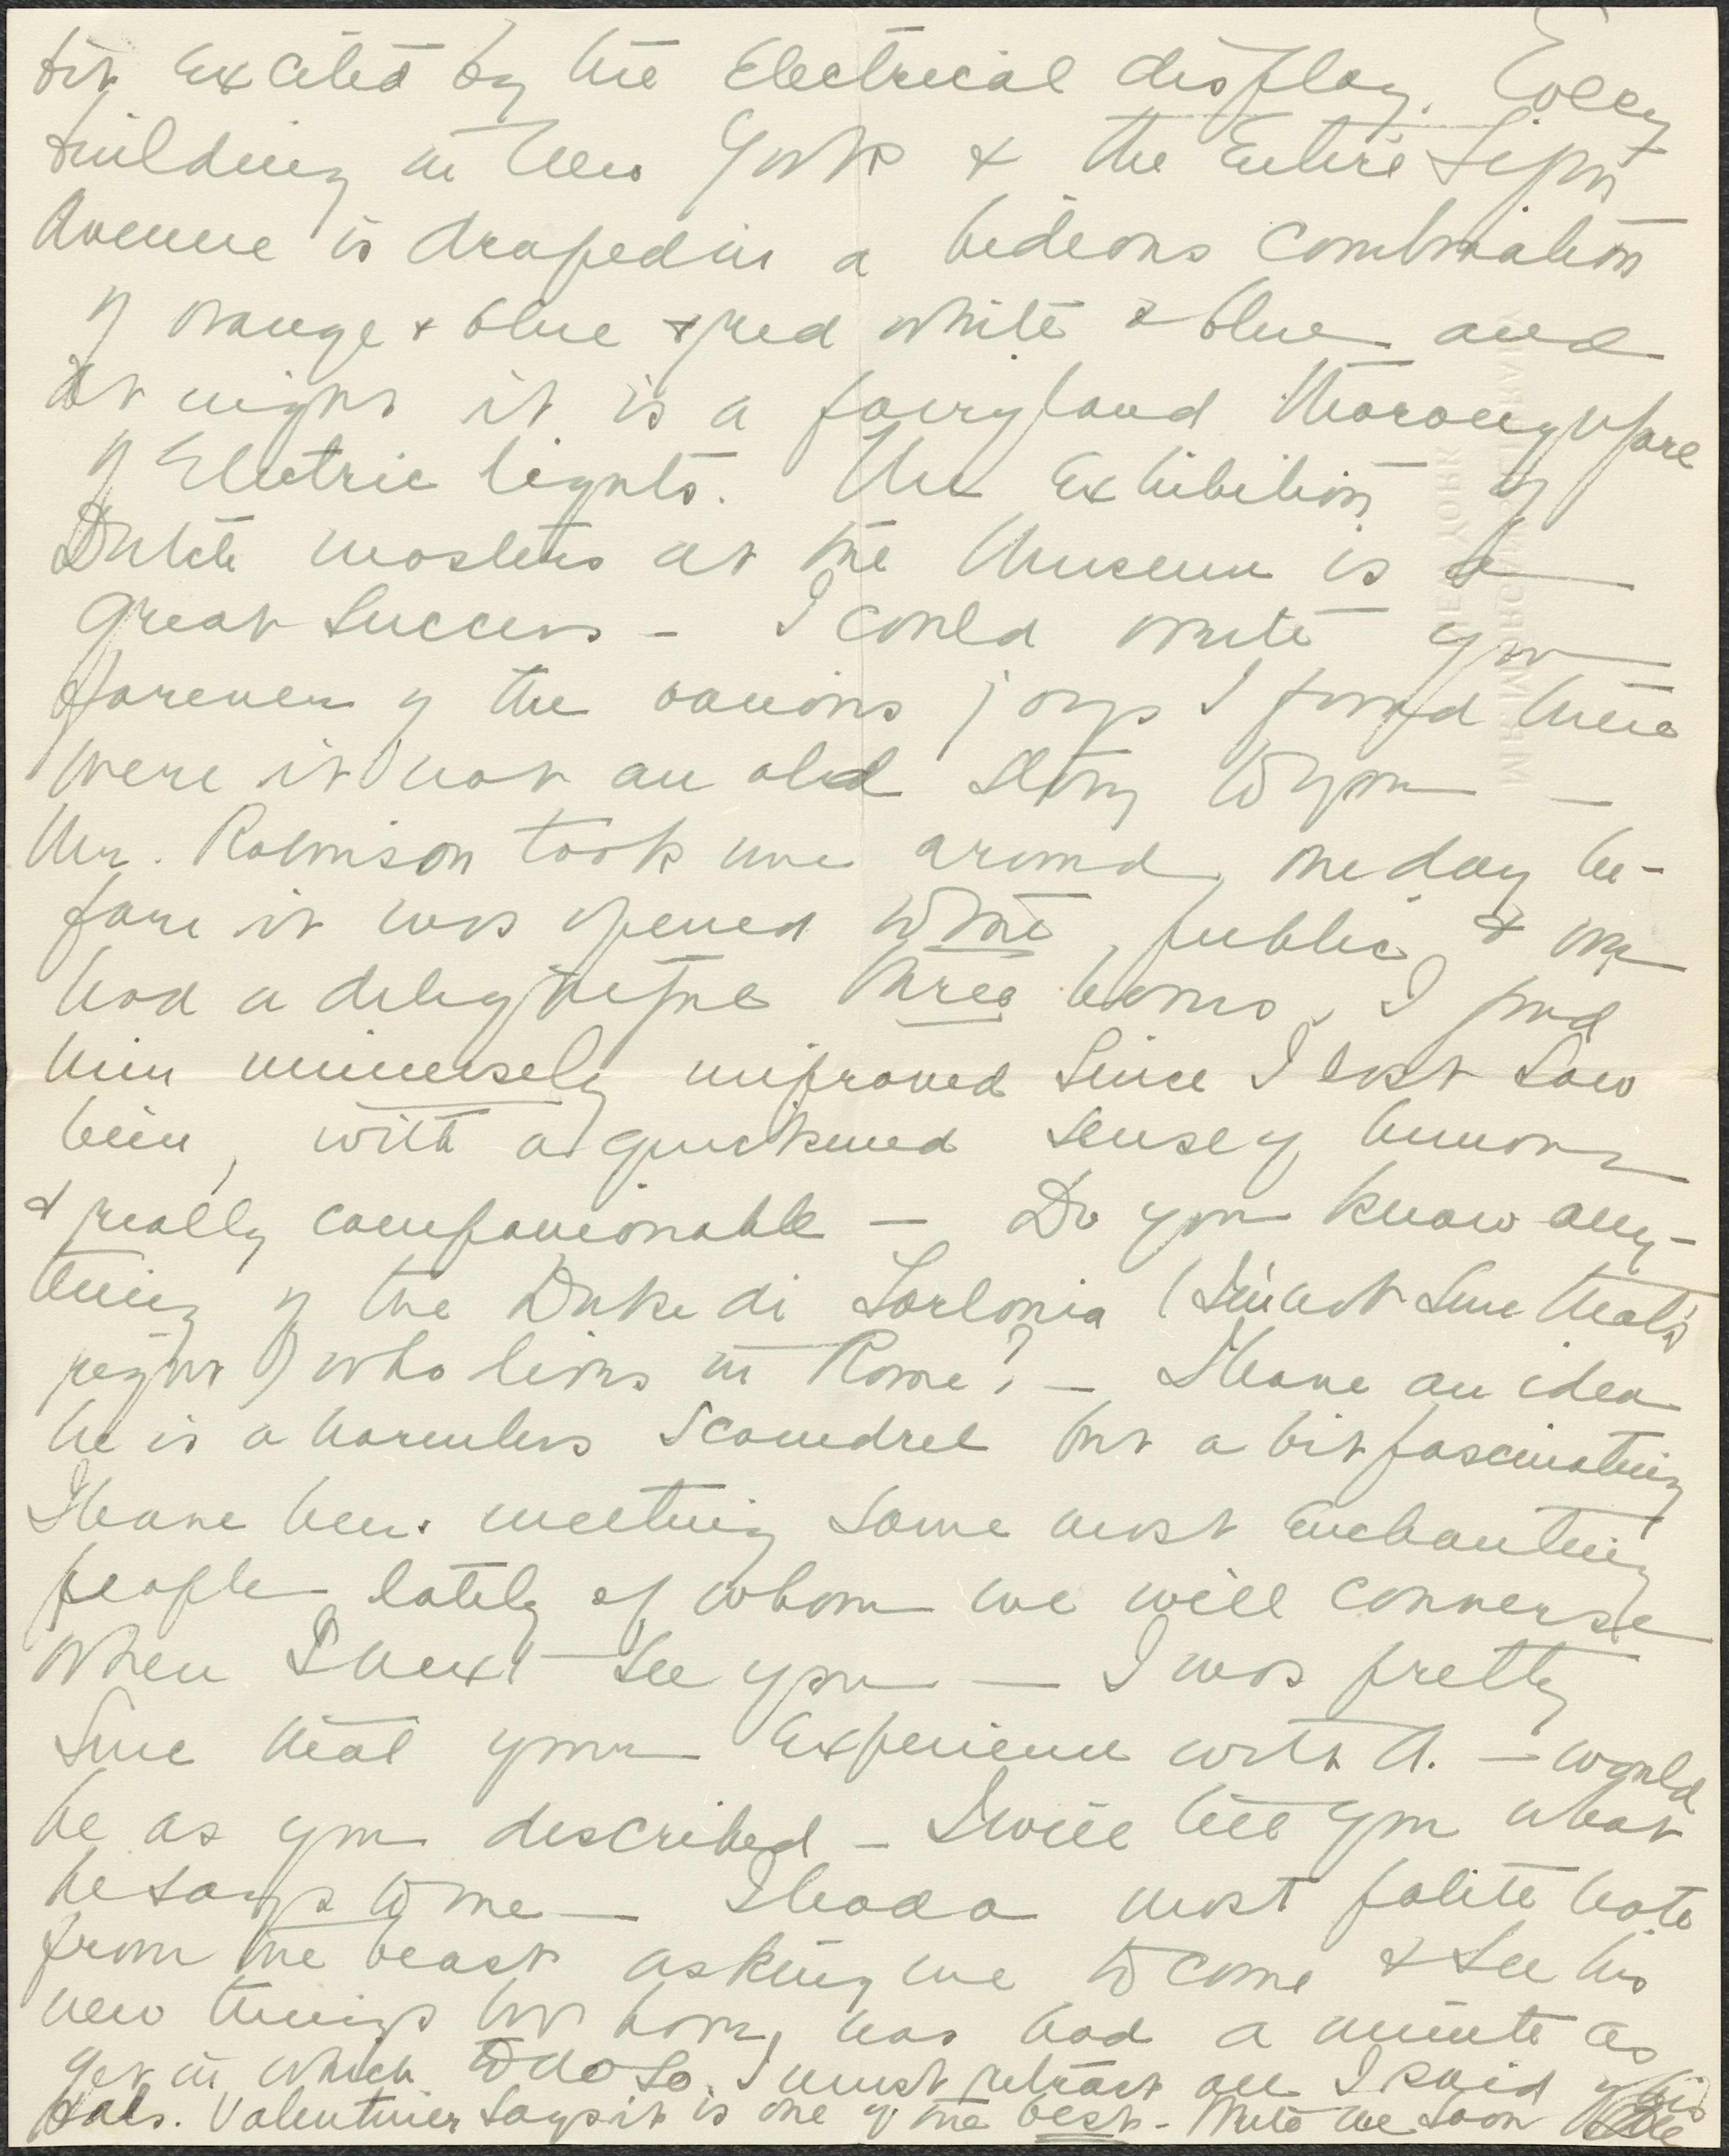 bit excited by the Electrical display. Every
building in New York & the Entire Fifth
Avenue is draped in a hideous combination
of orange & blue & red white & blue and
at night it is a fairyland thoroughfare
of Electric lights. The Exhibition of
Dutch masters at the Museum is a
great success - I could write you
forever of the various joys I found there
were it not an old story to you —
Mr. Robinson took me around one day be-
fore it was opened to the public & we
had a delightful three hours. I find
him immensely improved since I last saw
him, with a quickened sense of humour
& really companionable — Do you know any-
thing of the Duke di Torlonia (I'm not sure that's
right) who lives in Rome? - I have an idea
he is a harmless scoundrel but a bit fascinating
I have been meeting some most Enchanting
people lately of whom we will converse
when I next see you — I was pretty
sure that your Experience with A. — would
be as you described - I will tell you what
he says to me — I had a most polite note
from the beast asking me to come & see his
new things but have not had a minute as
yet in which to do so. I must retract all I said of his
Hals. Valentiner says it is one of the best - Write me soon